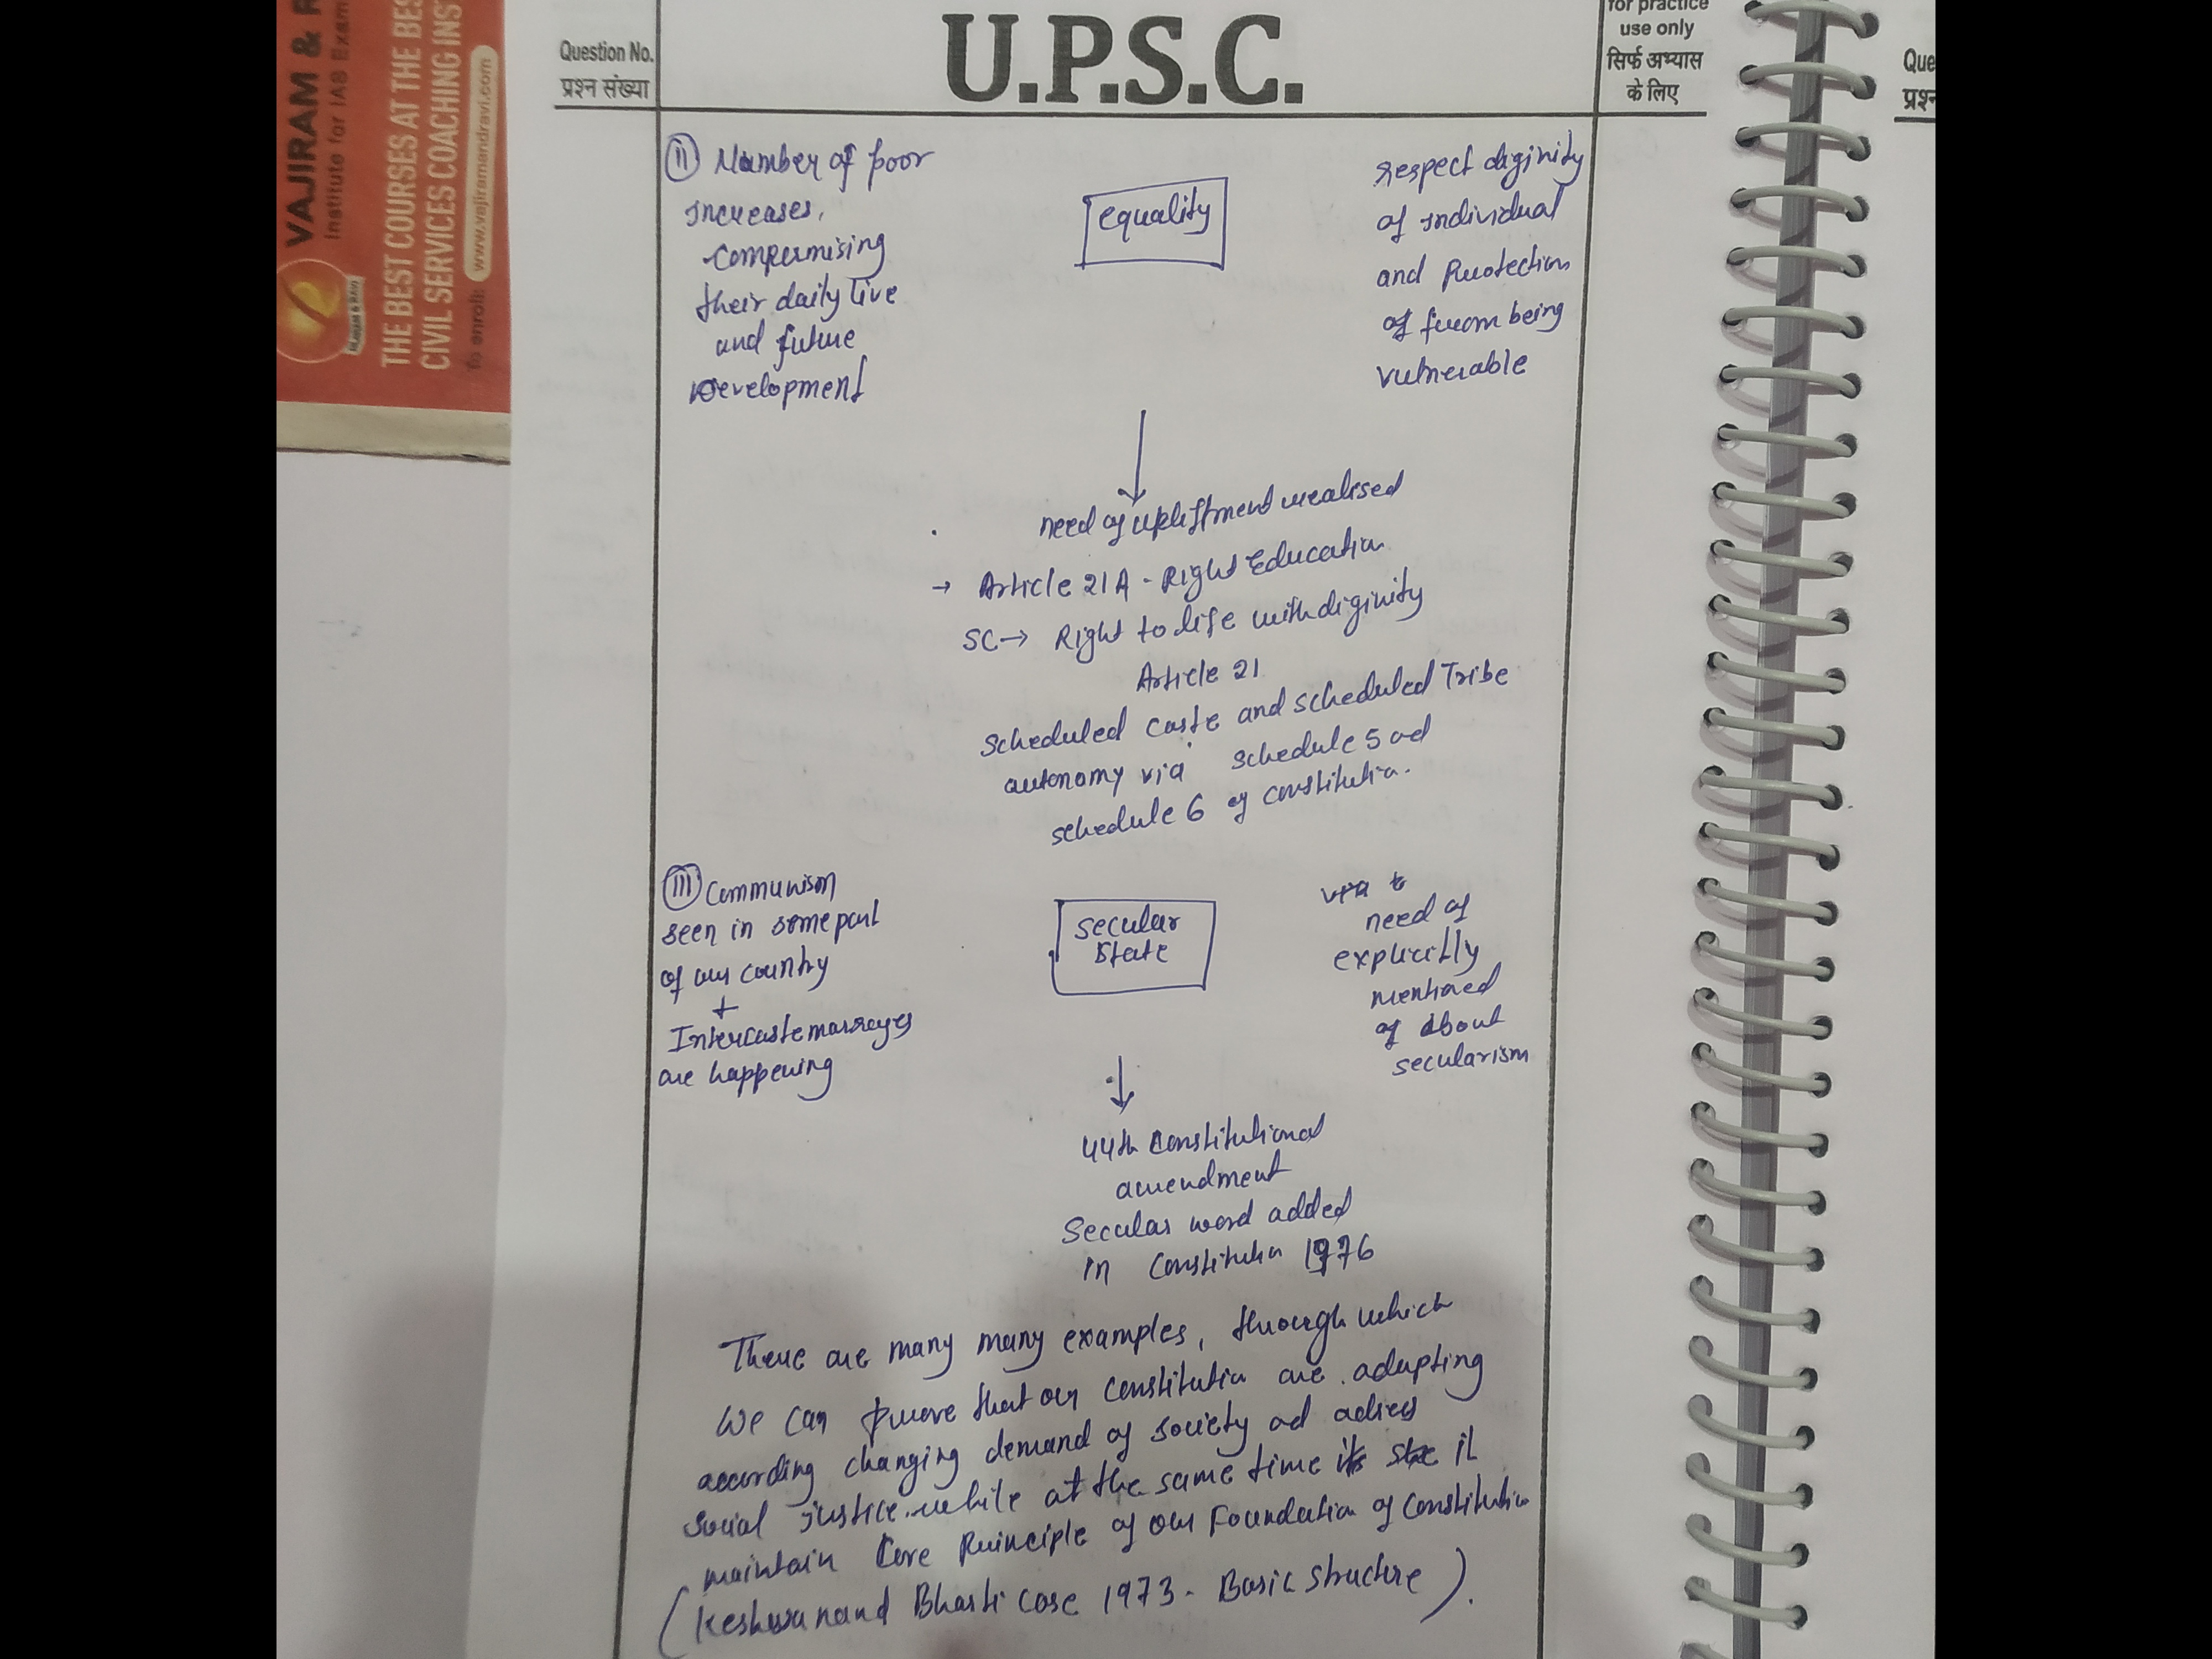 VAJIRAM & R
Institute for IAS Exam
THE BEST COURSES AT THE BES
CIVIL SERVICES COACHING INS
To enroll: www.vajiramandravi.com
Question No.
प्रश्न संख्या
U.P.S.C.
for practice
use only
सिर्फ अभ्यास
के लिए
Que
प्रश्न
II Number of poor
increases,
compermising
their daily live
and future
Development
equality
respect diginity
of individual
and Protection
of from being
vulnerable
need of upliftment realised
→ Article 21A - Right Education
SC → Right to life with diginity
Article 21
scheduled caste and scheduled Tribe
autonomy via schedule 5 ad
schedule 6 of constitutin.
III Communism
seen in some part
of our country
+
Intercaste marrages
are happening
secular
state
via
need of
explicitly
mentioned
of about
secularism
44th Constitutional
amendment
Secular word added
in Constitutin 1976
There are many many examples, through which
we can prove that our constitutin are adapting
according changing demand of society ad
social justice. while at the same time it
maintain Core Principle of our Foundation of Constitution
(Keshwanand Bharti case 1973 - Basic structure).